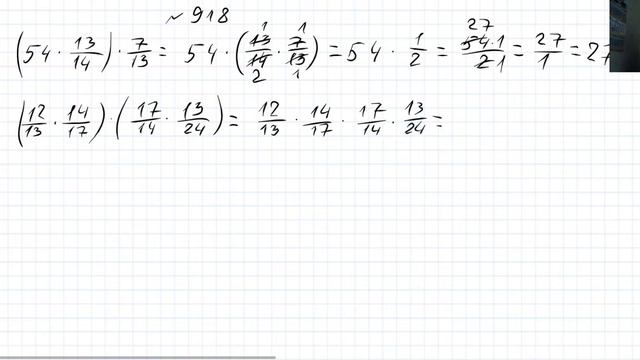 ~ 918
(54 · 13/14) · 7/13 = 54 · (13/14 · 7/13) = 54 · 1/2 = 54·1/2 = 27/1 = 27
(12/13 · 14/17) · (17/14 · 13/24) = 12/13 · 14/17 · 17/14 · 13/24 =